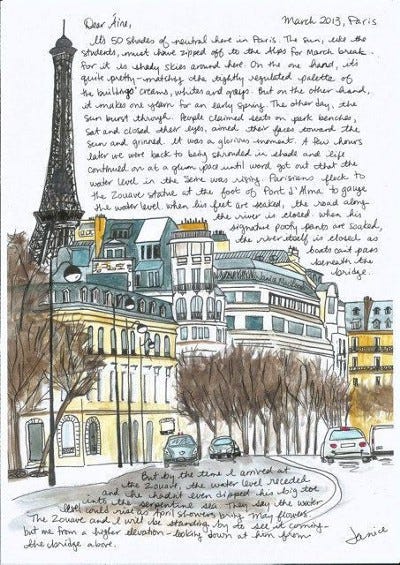 March 2013, Paris
Dear Áine,
It's 50 shades of neutral here in Paris. The sun, like the
students, must have zipped off to the Alps for March break.
For it is shady skies around here. On the one hand, it's
quite pretty - matching the tightly regulated palette of
the buildings' creams, whites and greys. But on the other hand,
it makes one yearn for an early Spring. The other day, the
sun burst through. People claimed seats on park benches,
sat and closed their eyes, aimed their faces toward the
sun and grinned. It was a glorious moment. A few hours
later we were back to being shrouded in shade and life
continued on at a glum pace until word got out that the
water level in the Seine was rising. Parisians flock to
the Zouave statue at the foot of Pont d'Alma to gauge
the water level. When his feet are soaked, the road along
the river is closed. When his
signature poofy pants are soaked,
the river itself is closed as
boats can't pass
beneath the
bridge.
But by the time I arrived at
the Zouave, the water level receded
and he hadn't even dipped his big toe
into the serpentine sea. They say the water
level could rise as April showers bring May flowers.
The Zouave and I will be standing by to see it coming -
but me from a higher elevation - looking down at him from
the bridge above.
Janice